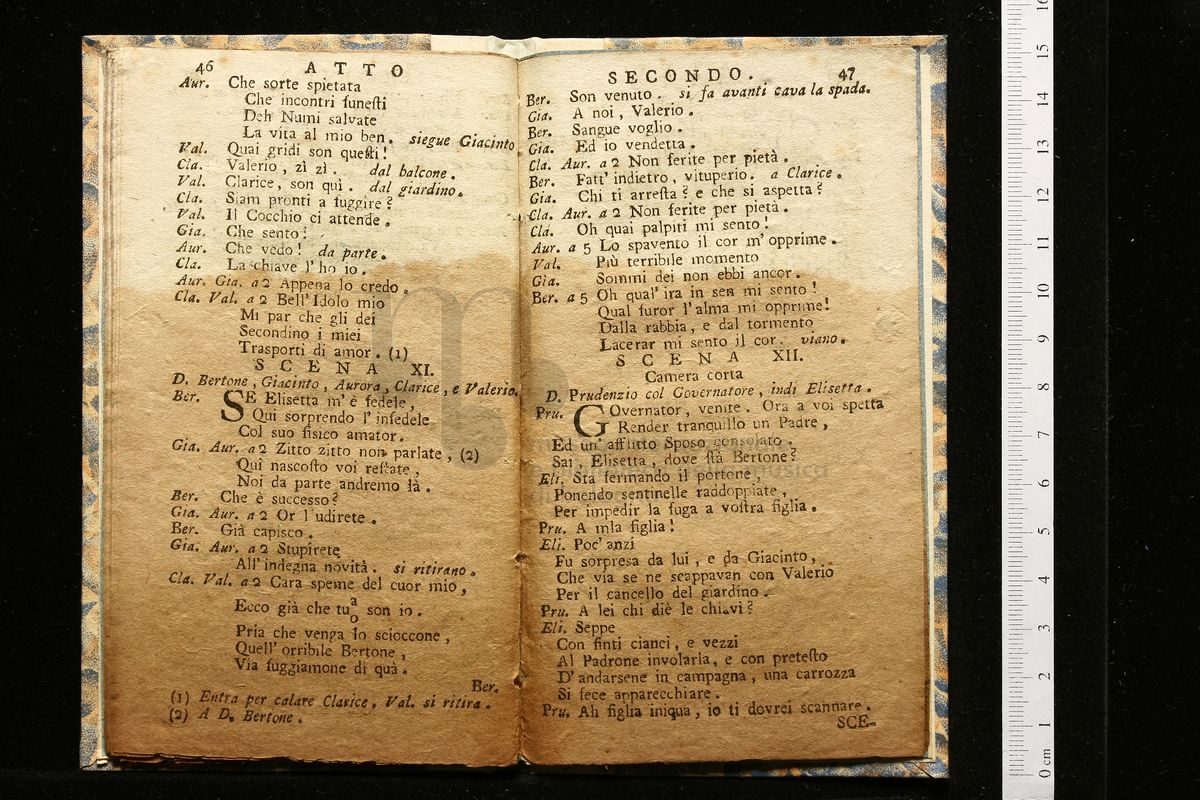 46 ATTO
Aur. Che sorte spietata
Che incontri funeſti
Deh Numi salvate
La vita al mio ben. siegue Giacinto.
Val. Quai gridi son queſti!
Cla. Valerio, zì zì. dal balcone.
Val. Clarice, son quì. dal giardino.
Cla. Siam pronti a fuggire?
Val. Il Cocchio ci attende.
Gia. Che sento!
Aur. Che vedo! da parte.
Cla. La chiave l'ho io.
Aur. Gia. a 2 Appena lo credo.
Cla. Val. a 2 Bell'Idolo mio
Mi par che gli dei
Secondino i miei
Trasporti di amor. (1)
SCENA XI.
D. Bertone, Giacinto, Aurora, Clarice, e Valerio.
Ber. SE Elisetta m'è fedele,
Qui sorprendo l'infedele
Col suo fisico amator.
Gia. Aur. a 2 Zitto zitto non parlate, (2)
Quì nascoſto voi reſtate,
Noi da parte andremo là.
Ber. Che è successo?
Gia. Aur. a 2 Or l'udirete.
Ber. Già capisco.
Gia. Aur. a 2 Stupirete
All'indegna novità. si ritirano.
Cla. Val. a 2 Cara speme del cuor mio,
Ecco già che tu a son io.
o
Pria che venga lo scioccone,
Quell'orribile Bertone,
Via fuggiamone di quà.
Ber.
(1) Entra per calare Clarice. Val. si ritira.
(2) A D. Bertone.
SECONDO. 47
Ber. Son venuto. si fa avanti cava la spada.
Gia. A noi, Valerio.
Ber. Sangue voglio.
Gia. Ed io vendetta.
Cla. Aur. a 2 Non ferite per pietà.
Ber. Fatt'indietro, vituperio. a Clarice.
Gia. Chi ti arreſta? e che si aspetta?
Cla. Aur. a 2 Non ferite per pietà.
Cla. Oh quai palpiti mi sento!
Aur. a 5 Lo spavento il cor m'opprime.
Val. Più terribile momento
Gia. Sommi dei non ebbi ancor.
Ber. a 5 Oh qual'ira in sen mi sento!
Qual furor l'alma mi opprime!
Dalla rabbia, e dal tormento
Lacerar mi sento il cor. viano.
SCENA XII.
Camera corta
D. Prudenzio col Governatore, indi Elisetta.
Pru. GOvernator, venite. Ora a voi spetta
Render tranquillo un Padre,
Ed un'afflitto Sposo consolato.
Sai, Elisetta, dove ſtà Bertone?
Eli. Sta fermando il portone,
Ponendo sentinelle raddoppiate,
Per impedir la fuga a voſtra figlia.
Pru. A mia figlia!
Eli. Poc'anzi
Fu sorpresa da lui, e da Giacinto,
Che via se ne scappavan con Valerio
Per il cancello del giardino.
Pru. A lei chi diè le chiavi?
Eli. Seppe
Con finti cianci, e vezzi
Al Padrone involarla, e con preteſto
D'andarsene in campagna, una carrozza
Si fece apparecchiare.
Pru. Ah figlia iniqua, io ti dovrei scannare.
SCE-
0 cm 1 2 3 4 5 6 7 8 9 10 11 12 13 14 15 16